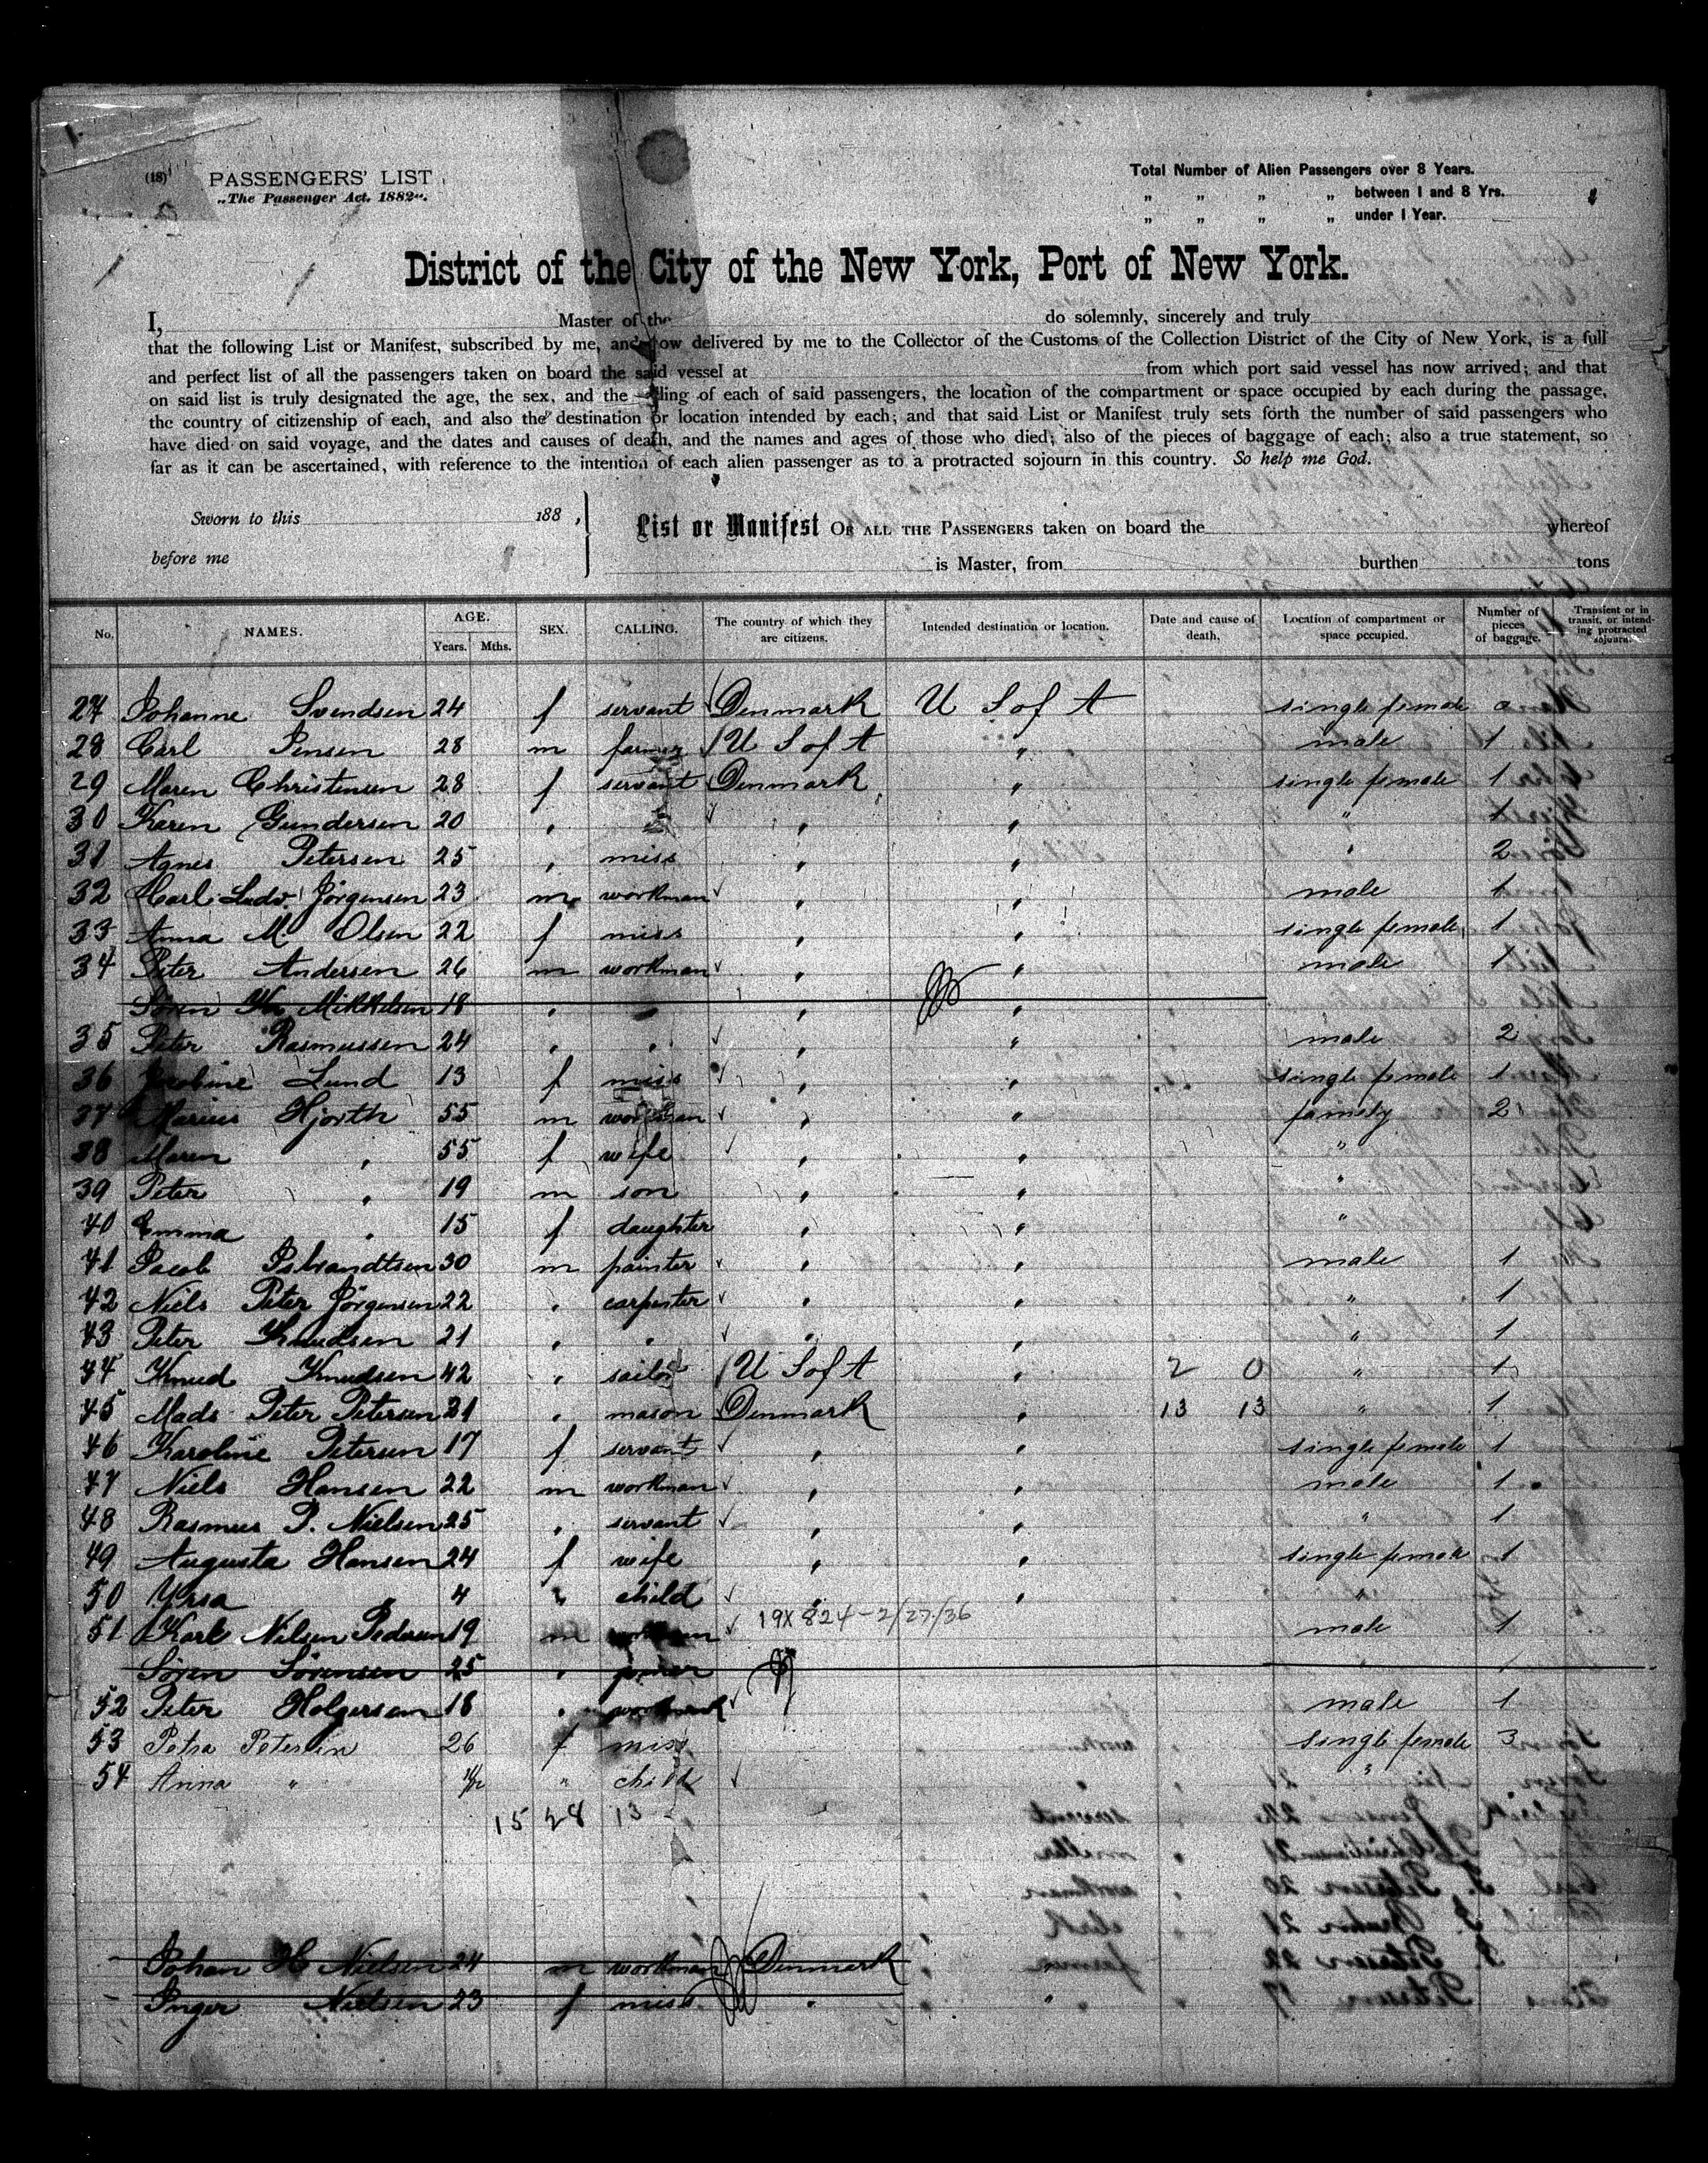 (18) PASSENGERS' LIST
„The Passenger Act. 1882".
Total Number of Alien Passengers over 8 Years.
„ „ „ „ between 1 and 8 Yrs.
„ „ „ „ under 1 Year.
District of the City of the New York, Port of New York.
I, Master of the do solemnly, sincerely and truly
that the following List or Manifest, subscribed by me, and now delivered by me to the Collector of the Customs of the Collection District of the City of New York, is a full
and perfect list of all the passengers taken on board the said vessel at from which port said vessel has now arrived; and that
on said list is truly designated the age, the sex, and the calling of each of said passengers, the location of the compartment or space occupied by each during the passage,
the country of citizenship of each, and also the destination or location intended by each; and that said List or Manifest truly sets forth the number of said passengers who
have died on said voyage, and the dates and causes of death, and the names and ages of those who died; also of the pieces of baggage of each; also a true statement, so
far as it can be ascertained, with reference to the intention of each alien passenger as to a protracted sojourn in this country. So help me God.
Sworn to this 188 ,
before me
List or Manifest OF ALL THE PASSENGERS taken on board the whereof
is Master, from burthen tons
No. NAMES. AGE. Years. Mths. SEX. CALLING. The country of which they are citizens. Intended destination or location. Date and cause of death, Location of compartment or space occupied. Number of pieces of baggage. Transient or in transit, or intending protracted sojourn.
27 Johanne Svendsen 24 f servant Denmark U S of A single female
28 Carl Jensen 28 m farmer U S of A „ male 1
29 Maren Christensen 28 f servant Denmark „ single female 1
30 Karen Gundersen 20 „ „ „ „ 1
31 Agnes Petersen 25 „ miss „ „ „ 2
32 Carl Ludv. Jörgensen 23 m workman „ „ male 1
33 Anna M. Olsen 22 f miss „ „ single female 1
34 Peter Andersen 26 m workman „ „ male 1
Sören Kr. Mikkelsen 18 „ „ „ „
35 Peter Rasmussen 24 „ „ „ „ male 2
36 Jacobine Lund 13 f miss „ „ single female 1
37 Marius Hjorth 55 m workman „ „ family 2
38 Maren „ 55 f wife „ „ „
39 Peter „ 19 m son „ „ „
40 Emma „ 15 f daughter „ „ „
41 Jacob Isbrandtsen 30 m painter „ „ male 1
42 Niels Peter Jörgensen 22 „ carpenter „ „ „ 1
43 Peter Knudsen 21 „ „ „ „ „ 1
44 Knud Knudsen 42 „ sailor U S of A „ 2 0 „ 1
45 Mads Peter Petersen 31 „ mason Denmark „ 13 13 „ 1
46 Karoline Petersen 17 f servant „ „ single female 1
47 Niels Hansen 22 m workman „ „ male 1
48 Rasmus P. Nielsen 25 „ servant „ „ „ 1
49 Augusta Hansen 24 f wife „ „ single female 1
50 Yrsa „ 4 „ child „ „ „
51 Karl Nilsen Pedersen 19 m workman 19X824-2/27/36 male 1
Sören Sörensen 25 „
52 Peter Holgersen 18 „ male 1
53 Petra Petersen 26 f miss single female 3
54 Anna „ „ child „
15 28 13
Johan H Nielsen 24 m workman Denmark „
Inger Nielsen 23 f miss „ „